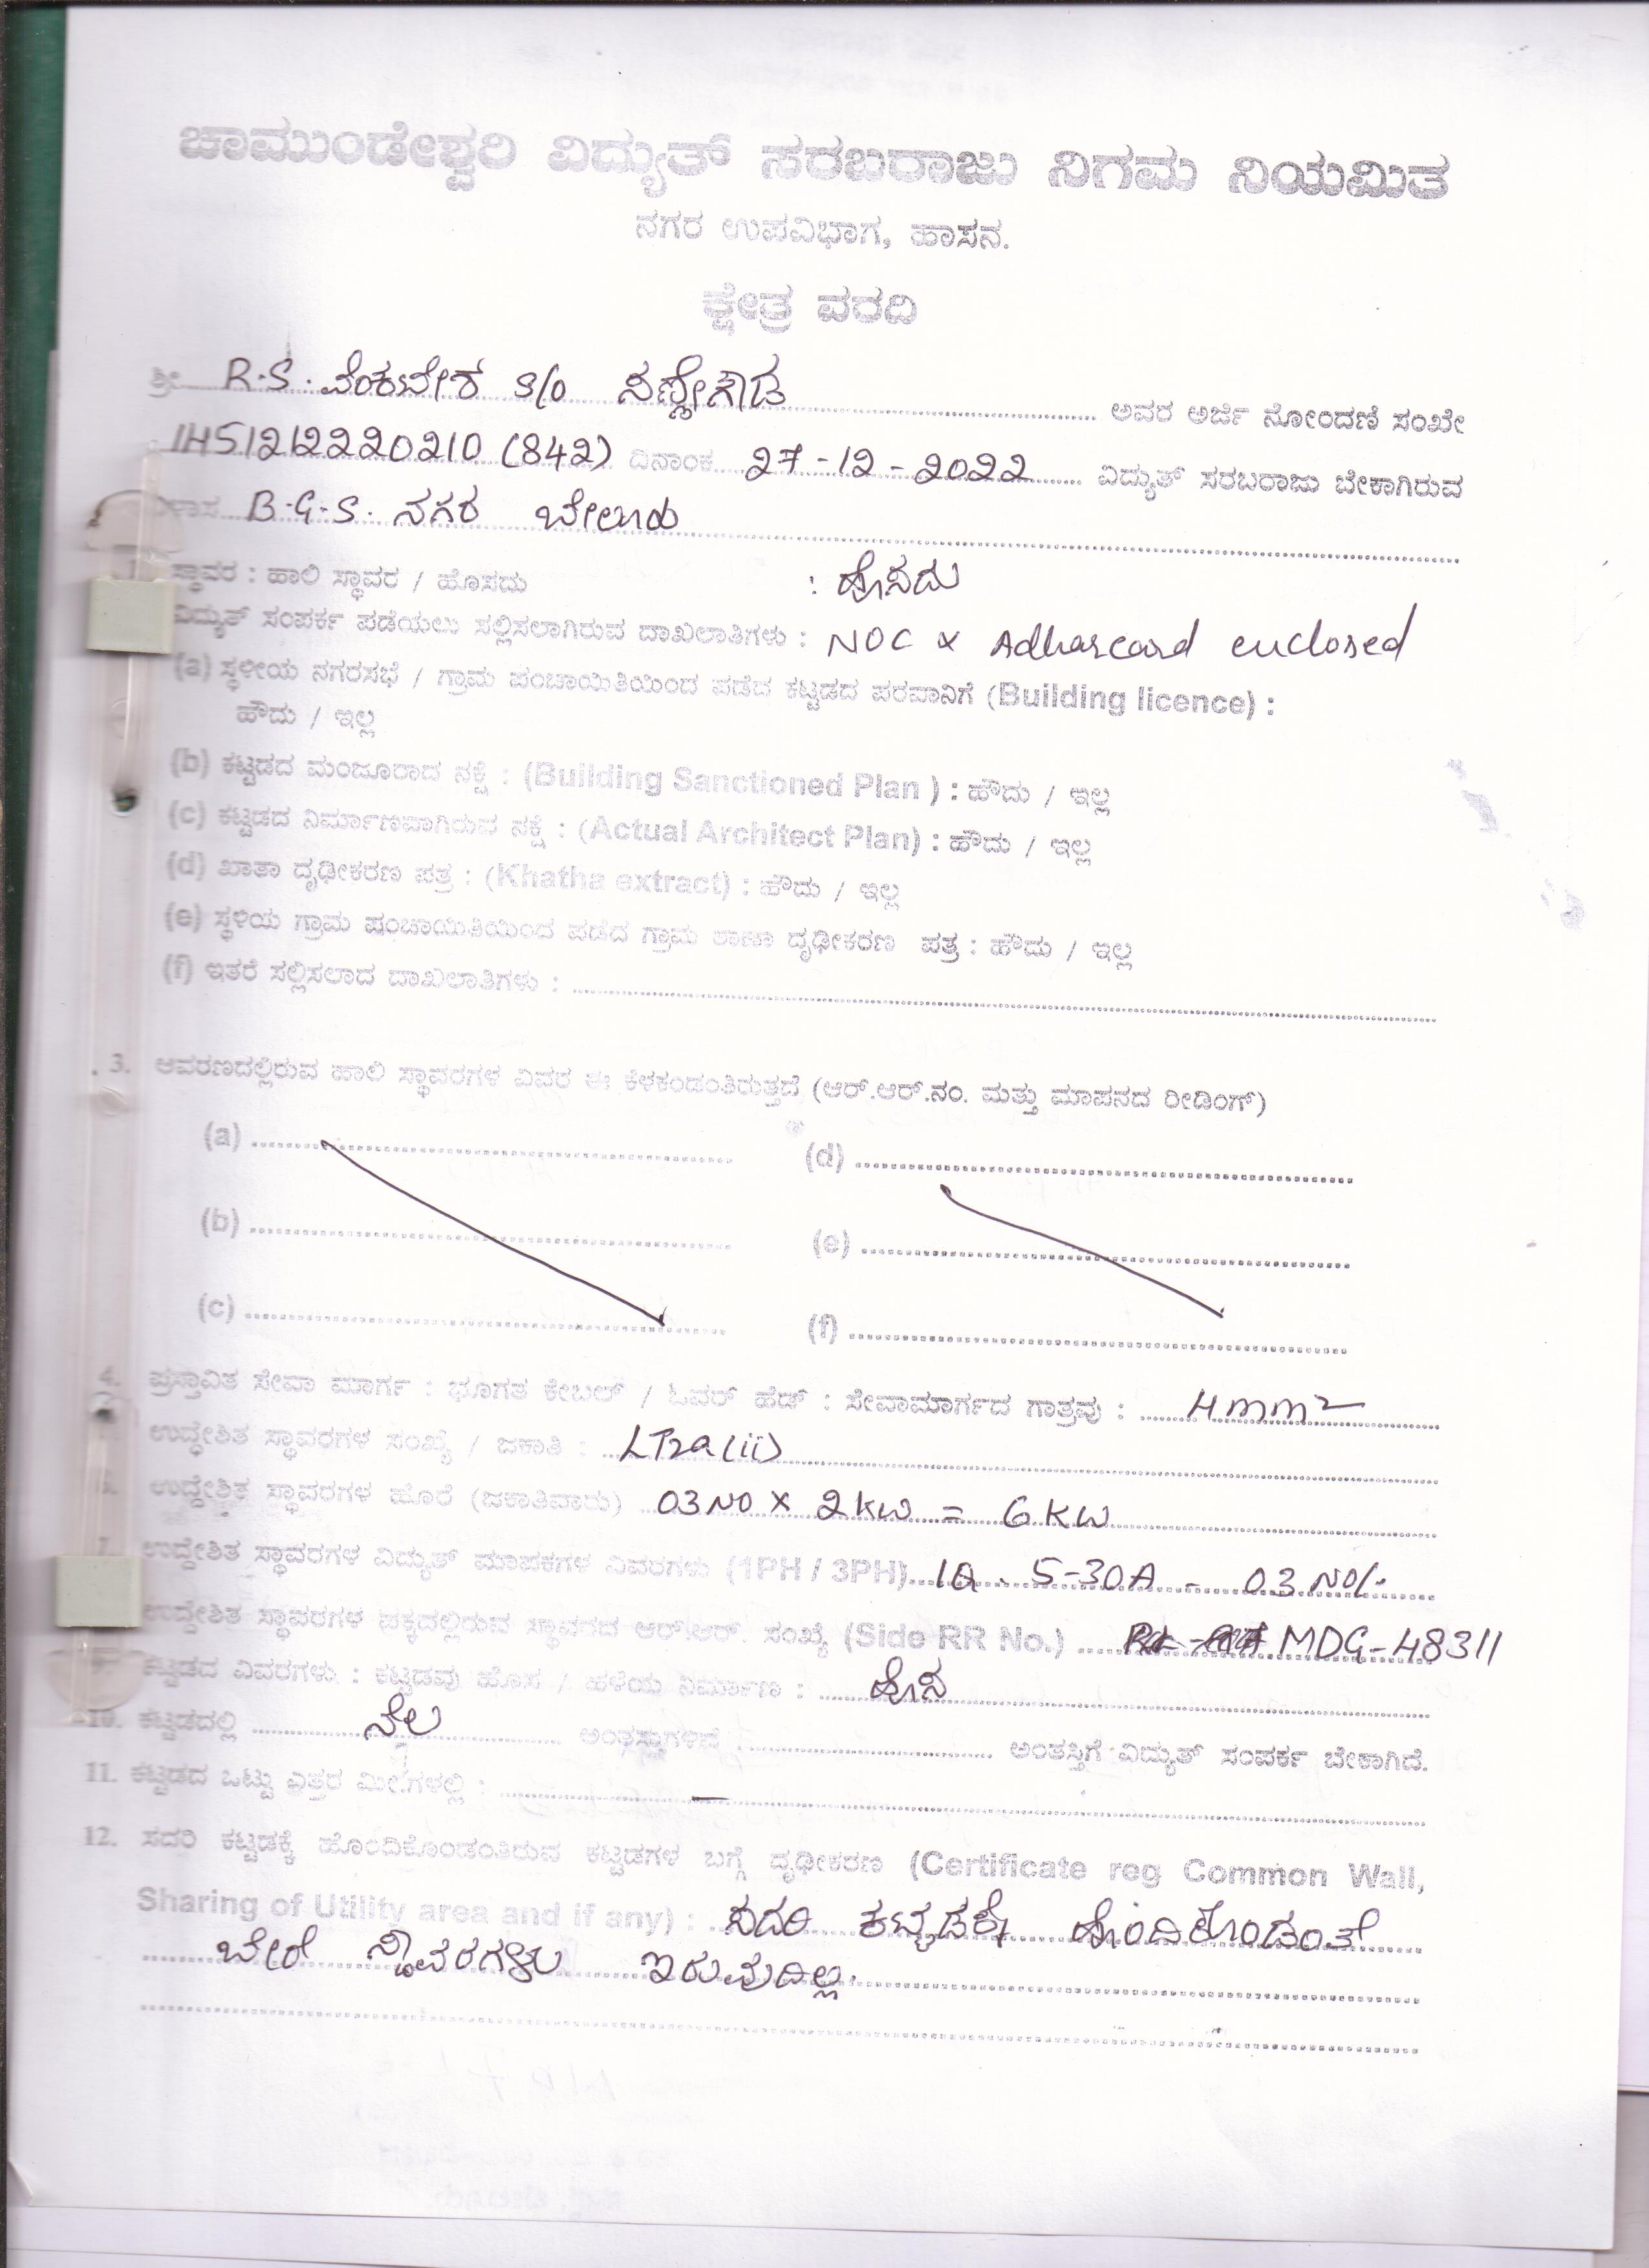 ಚಾಮುಂಡೇಶ್ವರಿ ವಿದ್ಯುತ್ ಸರಬರಾಜು ನಿಗಮ ನಿಯಮಿತ
ನಗರ ಉಪವಿಭಾಗ, ಹಾಸನ.
ಕ್ಷೇತ್ರ ವರದಿ
ಶ್ರೀ R.S. ವೆಂಕಟೇಶ S/O ಸಣ್ಣೇಗೌಡ ಅವರ ಅರ್ಜಿ ನೋಂದಣಿ ಸಂಖೇ
1H51212220210 (842) ದಿನಾಂಕ 27-12-2022 ವಿದ್ಯುತ್ ಸರಬರಾಜು ಬೇಕಾಗಿರುವ
ವಿಳಾಸ B.G.S. ನಗರ ಬೇಲೂರು
ಸ್ಥಾವರ : ಹಾಲಿ ಸ್ಥಾವರ / ಹೊಸದು : ಹೊಸದು
ವಿದ್ಯುತ್ ಸಂಪರ್ಕ ಪಡೆಯಲು ಸಲ್ಲಿಸಲಾಗಿರುವ ದಾಖಲಾತಿಗಳು : NOC & Adharcard enclosed
(a) ಸ್ಥಳೀಯ ನಗರಸಭೆ / ಗ್ರಾಮ ಪಂಚಾಯಿತಿಯಿಂದ ಪಡೆದ ಕಟ್ಟಡದ ಪರವಾನಿಗೆ (Building licence) :
ಹೌದು / ಇಲ್ಲ
(b) ಕಟ್ಟಡದ ಮಂಜೂರಾದ ನಕ್ಷೆ : (Building Sanctioned Plan ) : ಹೌದು / ಇಲ್ಲ
(c) ಕಟ್ಟಡದ ನಿರ್ಮಾಣವಾಗಿರುವ ನಕ್ಷೆ : (Actual Architect Plan) : ಹೌದು / ಇಲ್ಲ
(d) ಖಾತಾ ದೃಢೀಕರಣ ಪತ್ರ : (Khatha extract) : ಹೌದು / ಇಲ್ಲ
(e) ಸ್ಥಳಿಯ ಗ್ರಾಮ ಪಂಚಾಯಿತಿಯಿಂದ ಪಡೆದ ಗ್ರಾಮ ಠಾಣಾ ದೃಢೀಕರಣ ಪತ್ರ : ಹೌದು / ಇಲ್ಲ
(f) ಇತರೆ ಸಲ್ಲಿಸಲಾದ ದಾಖಲಾತಿಗಳು :
3. ಆವರಣದಲ್ಲಿರುವ ಹಾಲಿ ಸ್ಥಾವರಗಳ ವಿವರ ಈ ಕೆಳಕಂಡಂತಿರುತ್ತದೆ (ಆರ್.ಆರ್.ನಂ. ಮತ್ತು ಮಾಪನದ ರೀಡಿಂಗ್)
(a) (d)
(b) (e)
(c) (f)
4. ಪ್ರಸ್ತಾವಿತ ಸೇವಾ ಮಾರ್ಗ : ಭೂಗತ ಕೇಬಲ್ / ಓವರ್ ಹೆಡ್ : ಸೇವಾಮಾರ್ಗದ ಗಾತ್ರವು : 4mm²
ಉದ್ದೇಶಿತ ಸ್ಥಾವರಗಳ ಸಂಖ್ಯೆ / ಜಕಾತಿ : LT2a(ii)
6. ಉದ್ದೇಶಿತ ಸ್ಥಾವರಗಳ ಹೊರೆ (ಜಕಾತಿವಾರು) 03 NO X 2KW = 6 KW
ಉದ್ದೇಶಿತ ಸ್ಥಾವರಗಳ ವಿದ್ಯುತ್ ಮಾಪಕಗಳ ವಿವರಗಳು (1PH / 3PH) 1Ø. 5-30A - 03 NO/-
ಉದ್ದೇಶಿತ ಸ್ಥಾವರಗಳ ಪಕ್ಕದಲ್ಲಿರುವ ಸ್ಥಾವರದ ಆರ್.ಆರ್. ಸಂಖ್ಯೆ (Side RR No.) MDG-48311
ಕಟ್ಟಡದ ವಿವರಗಳು : ಕಟ್ಟಡವು ಹೊಸ / ಹಳೆಯ ನಿರ್ಮಾಣ : ಹೊಸ
10. ಕಟ್ಟಡದಲ್ಲಿ ನೆಲ ಅಂತಸ್ತುಗಳಿವೆ ಅಂತಸ್ತಿಗೆ ವಿದ್ಯುತ್ ಸಂಪರ್ಕ ಬೇಕಾಗಿದೆ.
11. ಕಟ್ಟಡದ ಒಟ್ಟು ಎತ್ತರ ಮೀ.ಗಳಲ್ಲಿ : -
12. ಸದರಿ ಕಟ್ಟಡಕ್ಕೆ ಹೊಂದಿಕೊಂಡಂತಿರುವ ಕಟ್ಟಡಗಳ ಬಗ್ಗೆ ದೃಢೀಕರಣ (Certificate reg Common Wall,
Sharing of Utility area and if any) : ಸದರಿ ಕಟ್ಟಡಕ್ಕೆ ಹೊಂದಿಕೊಂಡಂತೆ
ಬೇರೆ ಸ್ಥಾವರಗಳು ಇರುವುದಿಲ್ಲ.